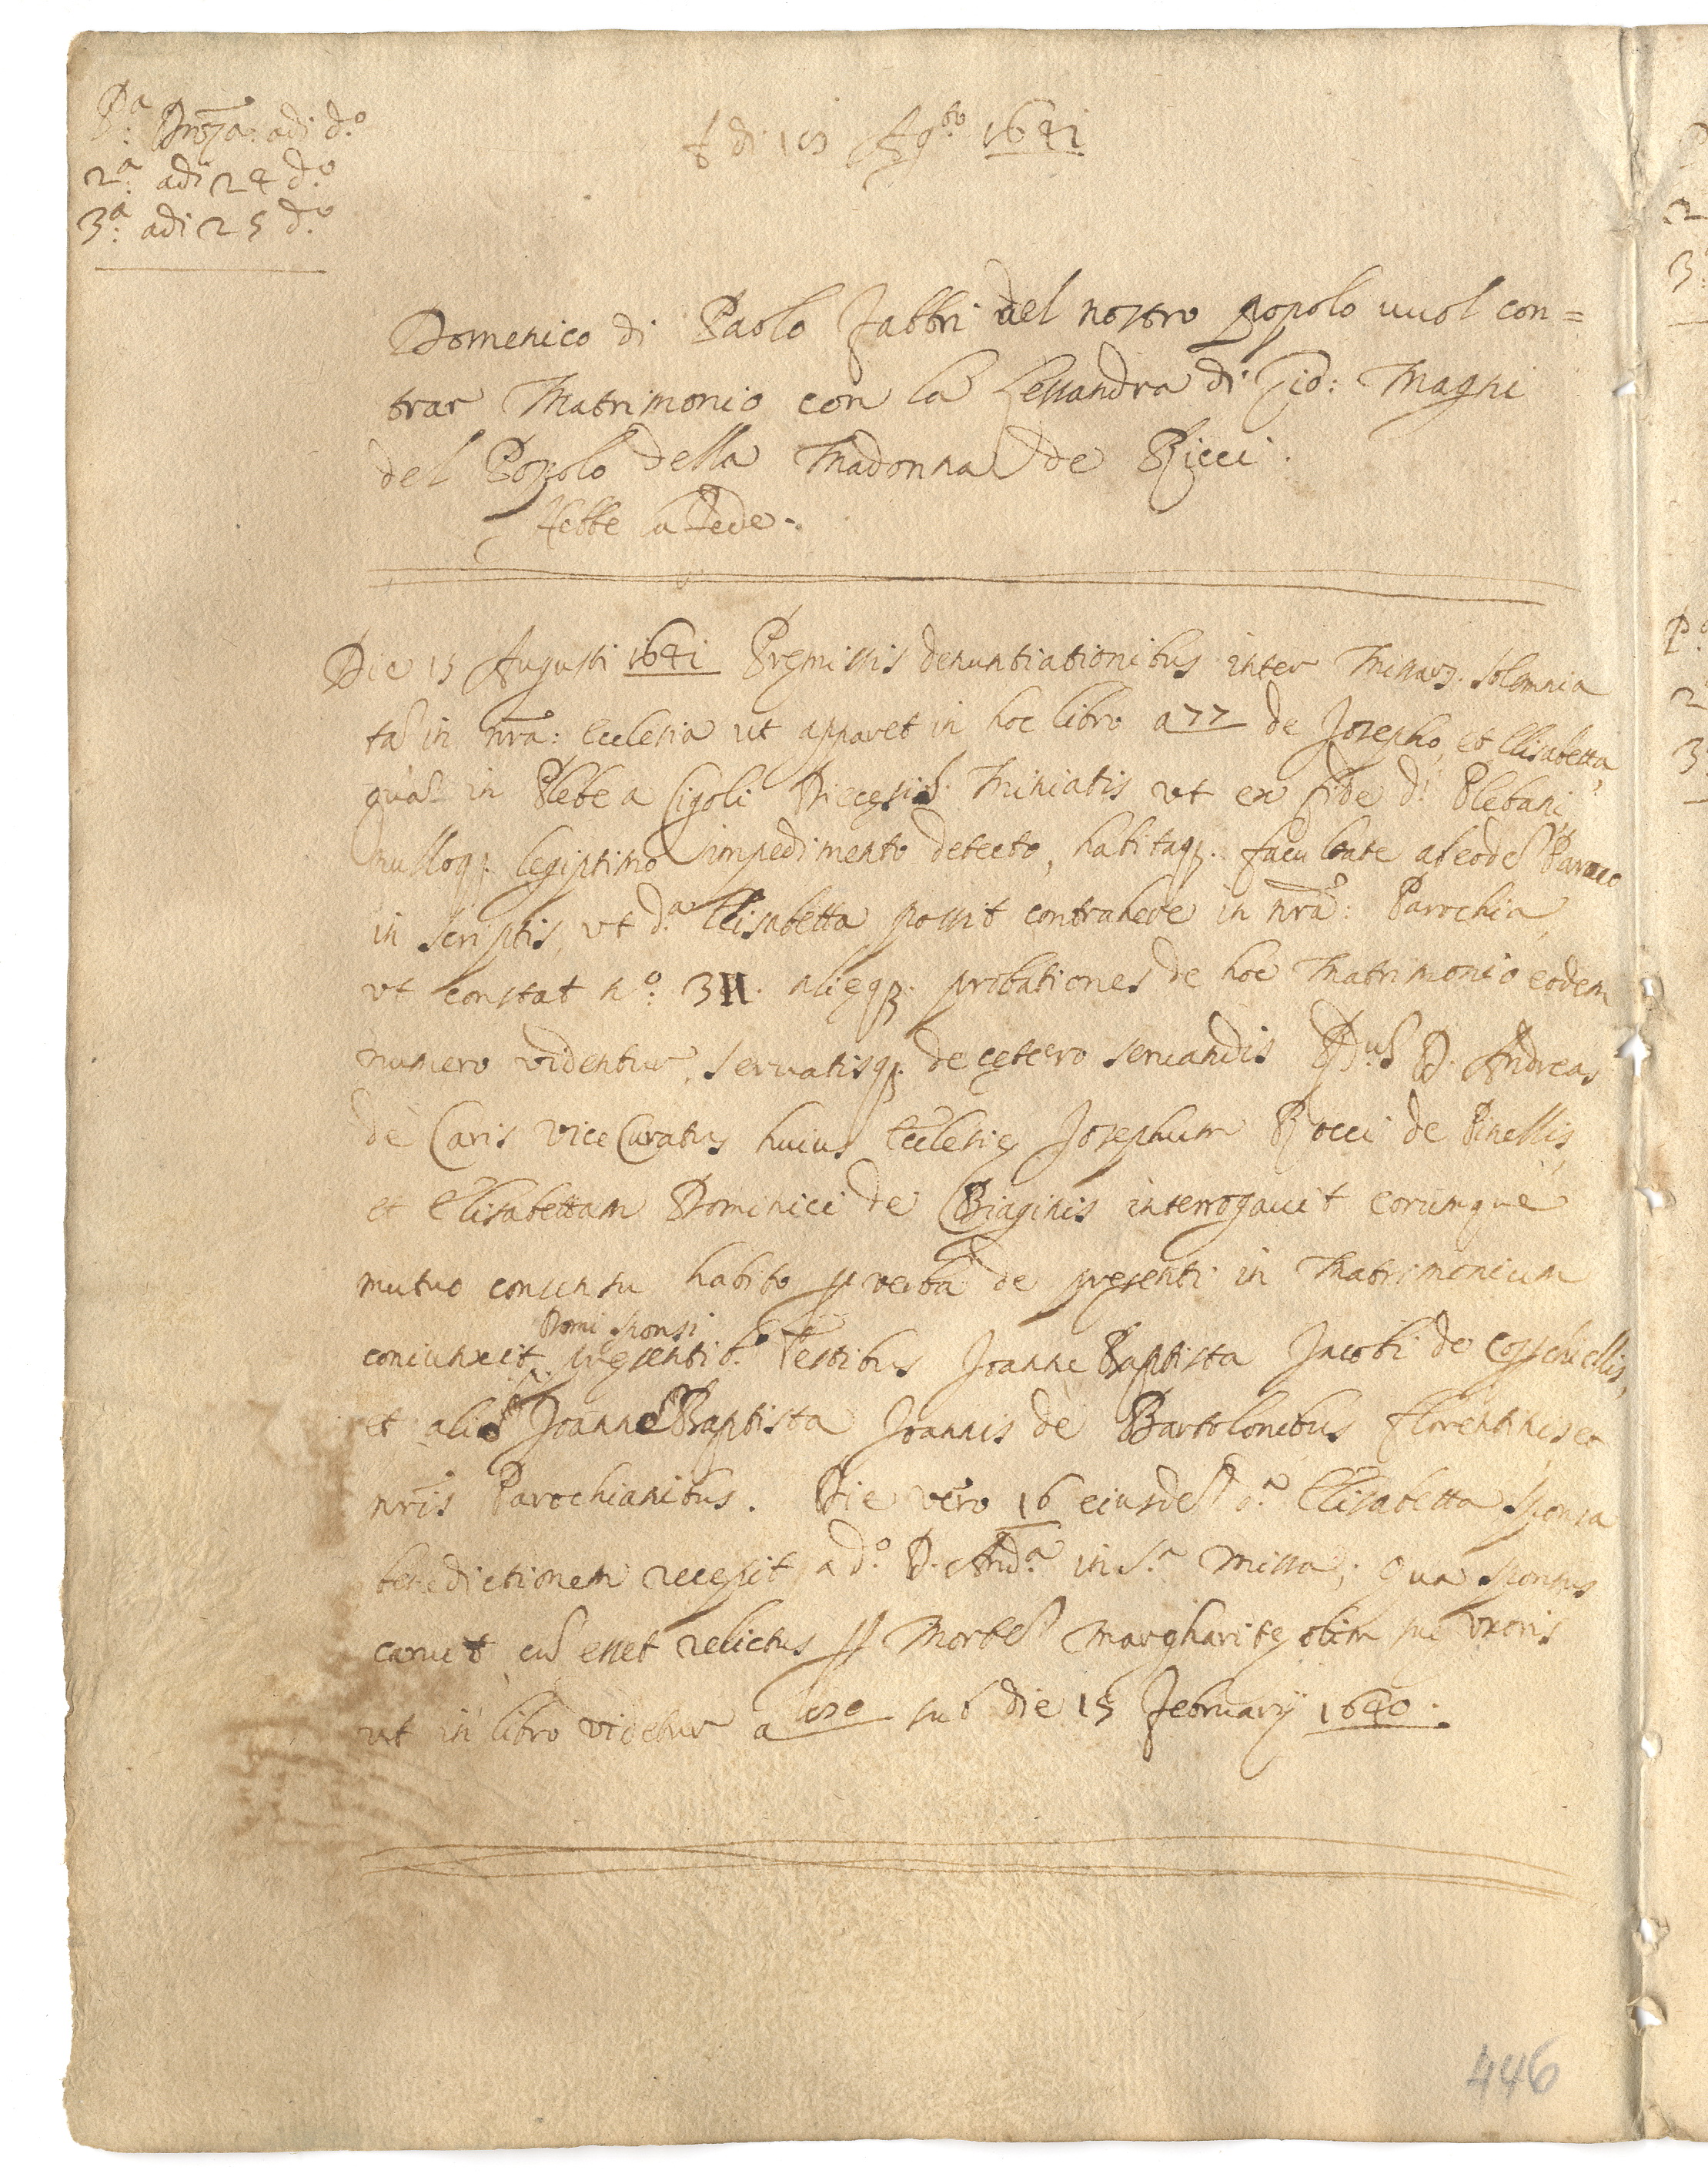 Pa: Dnõza: adi d.o
2a: adi 24 d.o
3a: adi 25 d.o
Adi 15 Ag.to 1641
Domenico di Paolo Fabbri del nostro popolo vuol con=
trar Matrimonio con la Lessandra di Gio: Magni
del Popolo della Madonna de Ricci.
Hebbe la fede.
Die 15 Augusti 1641 Premissis denuntiationibus inter Missarũ. solemnia
tã in nrã: Ecclesia ut apparet in hoc libro a 77 de Josepho, et Elisabetta,
quã in Plebe a Cigoli Diecesis Miniatis ut ex fide d.i Plebani,
nulloq; legiptimo impedimento detecto, habitaq; facultate ab eodẽ Paroco
in scriptis, ut d.a Elisabetta possit contrahere in nrã: Parochia,
ut constat n.o: 3II. alieq; probationes de hoc Matrimonio eodem
numero videntur, servatisq; de cetero servandis R.dus D. Andreas
de Caris Vice Curatus huius Ecclesie Josephum Rocci de Pinellis,
et Elisabettam Dominici de Biaginis interrogavit eorumque
mutuo consensu habito p verba de presenti in Matrimonium
Domi sponsi
coniunxit presentib.s Testibus Joanne Baptista Jacobi de
et alio Joanne Baptista Joannis de Bartolonibus florentinis et
nrĩs Parochianibus. Die vero 16 eiusdẽ d.a Elisabetta sponsa
benedictionem recepit a d.o D. And.a in S.a Missa; Qua sponsus
caruit cũ esset relictus p Mortẽ Margharite olim sue uxoris
ut in libro videtur a sub die 15 February 1640.
446